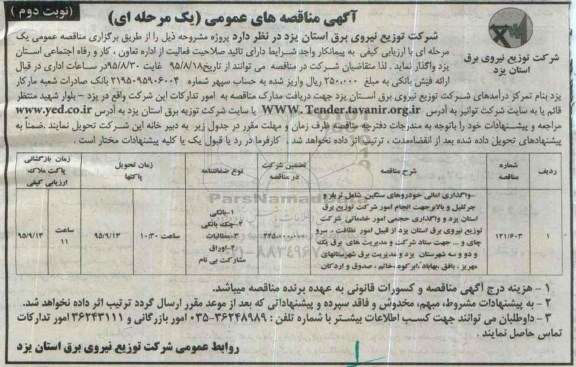 (نوبت دوم)
آگهی مناقصه های عمومی (یک مرحله ای)
شرکت توزیع نیروی برق
استان یزد
شرکت توزیع نیروی برق استان یزد در نظر دارد پروژه مشروحه ذیل را از طریق برگزاری مناقصه عمومی یک
مرحله ای با ارزیابی کیفی به پیمانکار واجد شرایط دارای تائید صلاحیت فعالیت از اداره تعاون ، کار و رفاه اجتماعی استان
یزد واگذار نماید . لذا متقاضیان شرکت در مناقصه می توانند از تاریخ ۹۵/۸/۱۸ لغایت ۹۵/۸/۳۰ در ساعات اداری در قبال
ارائه فیش بانکی به مبلغ ۲۵۰۰۰۰ ریال واریز شده به حساب سپهر شماره ۲۱۹۵۰۹۵۹۰۶۰۰۴ بانک صادرات شعبه مارکار
یزد بنام تمرکز درآمدهای شرکت توزیع نیروی برق استان یزد جهت دریافت مدارک مناقصه به امور تدارکات این شرکت واقع در یزد – بلوار شهید منتظر
قائم یا به سایت شرکت توانیر به آدرس WWW. Tender.tavanir.org.ir یا سایت شرکت توزیع برق استان یزد به آدرس www.yed.co.ir
مراجعه و پیشنهادات خود را با توجه به مندجات دفترچه مناقصه ظرف زمان و مهلت مقرر در جدول زیر به دبیر خانه این شرکت تحویل نمایند .ضمناً به
پیشنهادهای تحویل داده شده بعد از انقضاءمدت ، ترتیب اثر داده نخواهد شد . کارفرما در رد یا قبول یک یا کلیه پیشنهادات مختار است .
ردیف
شماره مناقصه
شرح مناقصه
تضمین شرکت در مناقصه
نوع ضمانتنامه
زمان تحویل پاکتها
زمان بازگشائی پاکت ملاک ارزیابی کیفی
۱
۱۲۱/۶۰۳
–واگذاری امانی خودروهای سنگین شامل تریلر و
جرثقیل و بالابر جهت انجام امور شرکت توزیع برق
استان یزد و واگذاری حجمی امور خدماتی شرکت
توزیع نیروی برق استان یزد از قبیل امور نظافت ، سرو
چای و ... جهت ستاد شرکت و مدیریت های برق یک
و دو و سه شهرستان یزد و مدیریت برق شهرستانهای
مهریز ، بافق ،بهاباد ،ابرکوه ،خاتم ، صدوق و اردکان
۱–بانکی
۲–چک بانکی
۳–مطالبات
۴–اوراق
مشارکت بی نام
ساعت ۱۰:۳۰
۹۵/۹/۱۳
ساعت
۱۱
۹۵/۹/۱۳
ParsNamadData
۱ – هزینه درج آگهی مناقصه و کسورات قانونی به عهده برنده مناقصه میباشد.
۲ – به پیشنهادات مشروط، مبهم، مخدوش و فاقد سپرده و پیشنهاداتی که بعد از موعد مقرر ارسال گردد ترتیب اثر داده نخواهد شد.
۳ – داوطلبان می توانند جهت کسب اطلاعات بیشتر با شماره تلفن : ۳۶۲۴۸۹۸۹–۰۳۵ امور بازرگانی و ۳۶۲۴۳۱۱۱ امور تدارکات
تماس حاصل نمایند .
روابط عمومی شرکت توزیع نیروی برق استان یزد